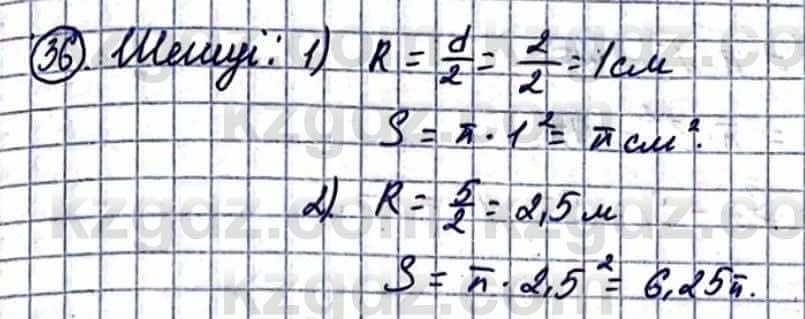 36. Шешуі: 1) R = d/2 = 2/2 = 1 см
S = π · 1² = π см².
2). R = 5/2 = 2,5 м
S = π · 2,5² = 6,25π.
kzgdz.com